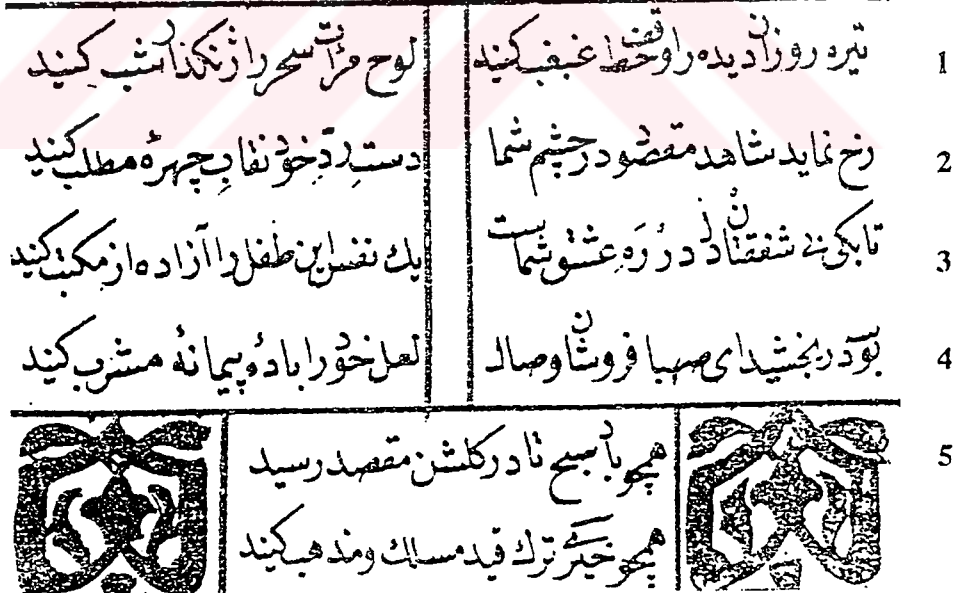 تیره روزان دیده را وقف خط غبغب کنید لوح مرآت سحر را ژنکذار شب کنید 1
رخ نماید شاهد مقصود در چشم شما دست ردّ خود نقابِ چهرهٔ مطلب کنید 2
تا بکی نی شفقتان دل در رَهِ عشق شماست یك نفس این طفل را آزاده از مکتب کنید 3
بو در بخشید ای صهبا فروشان وصال لعل خود را بادهٔ پیمانهٔ مشرب کنید 4
همچو باد صبح تا در کلشن مقصد رسید 5
همچو خیری ترك قید مسالك و مذهب کنید